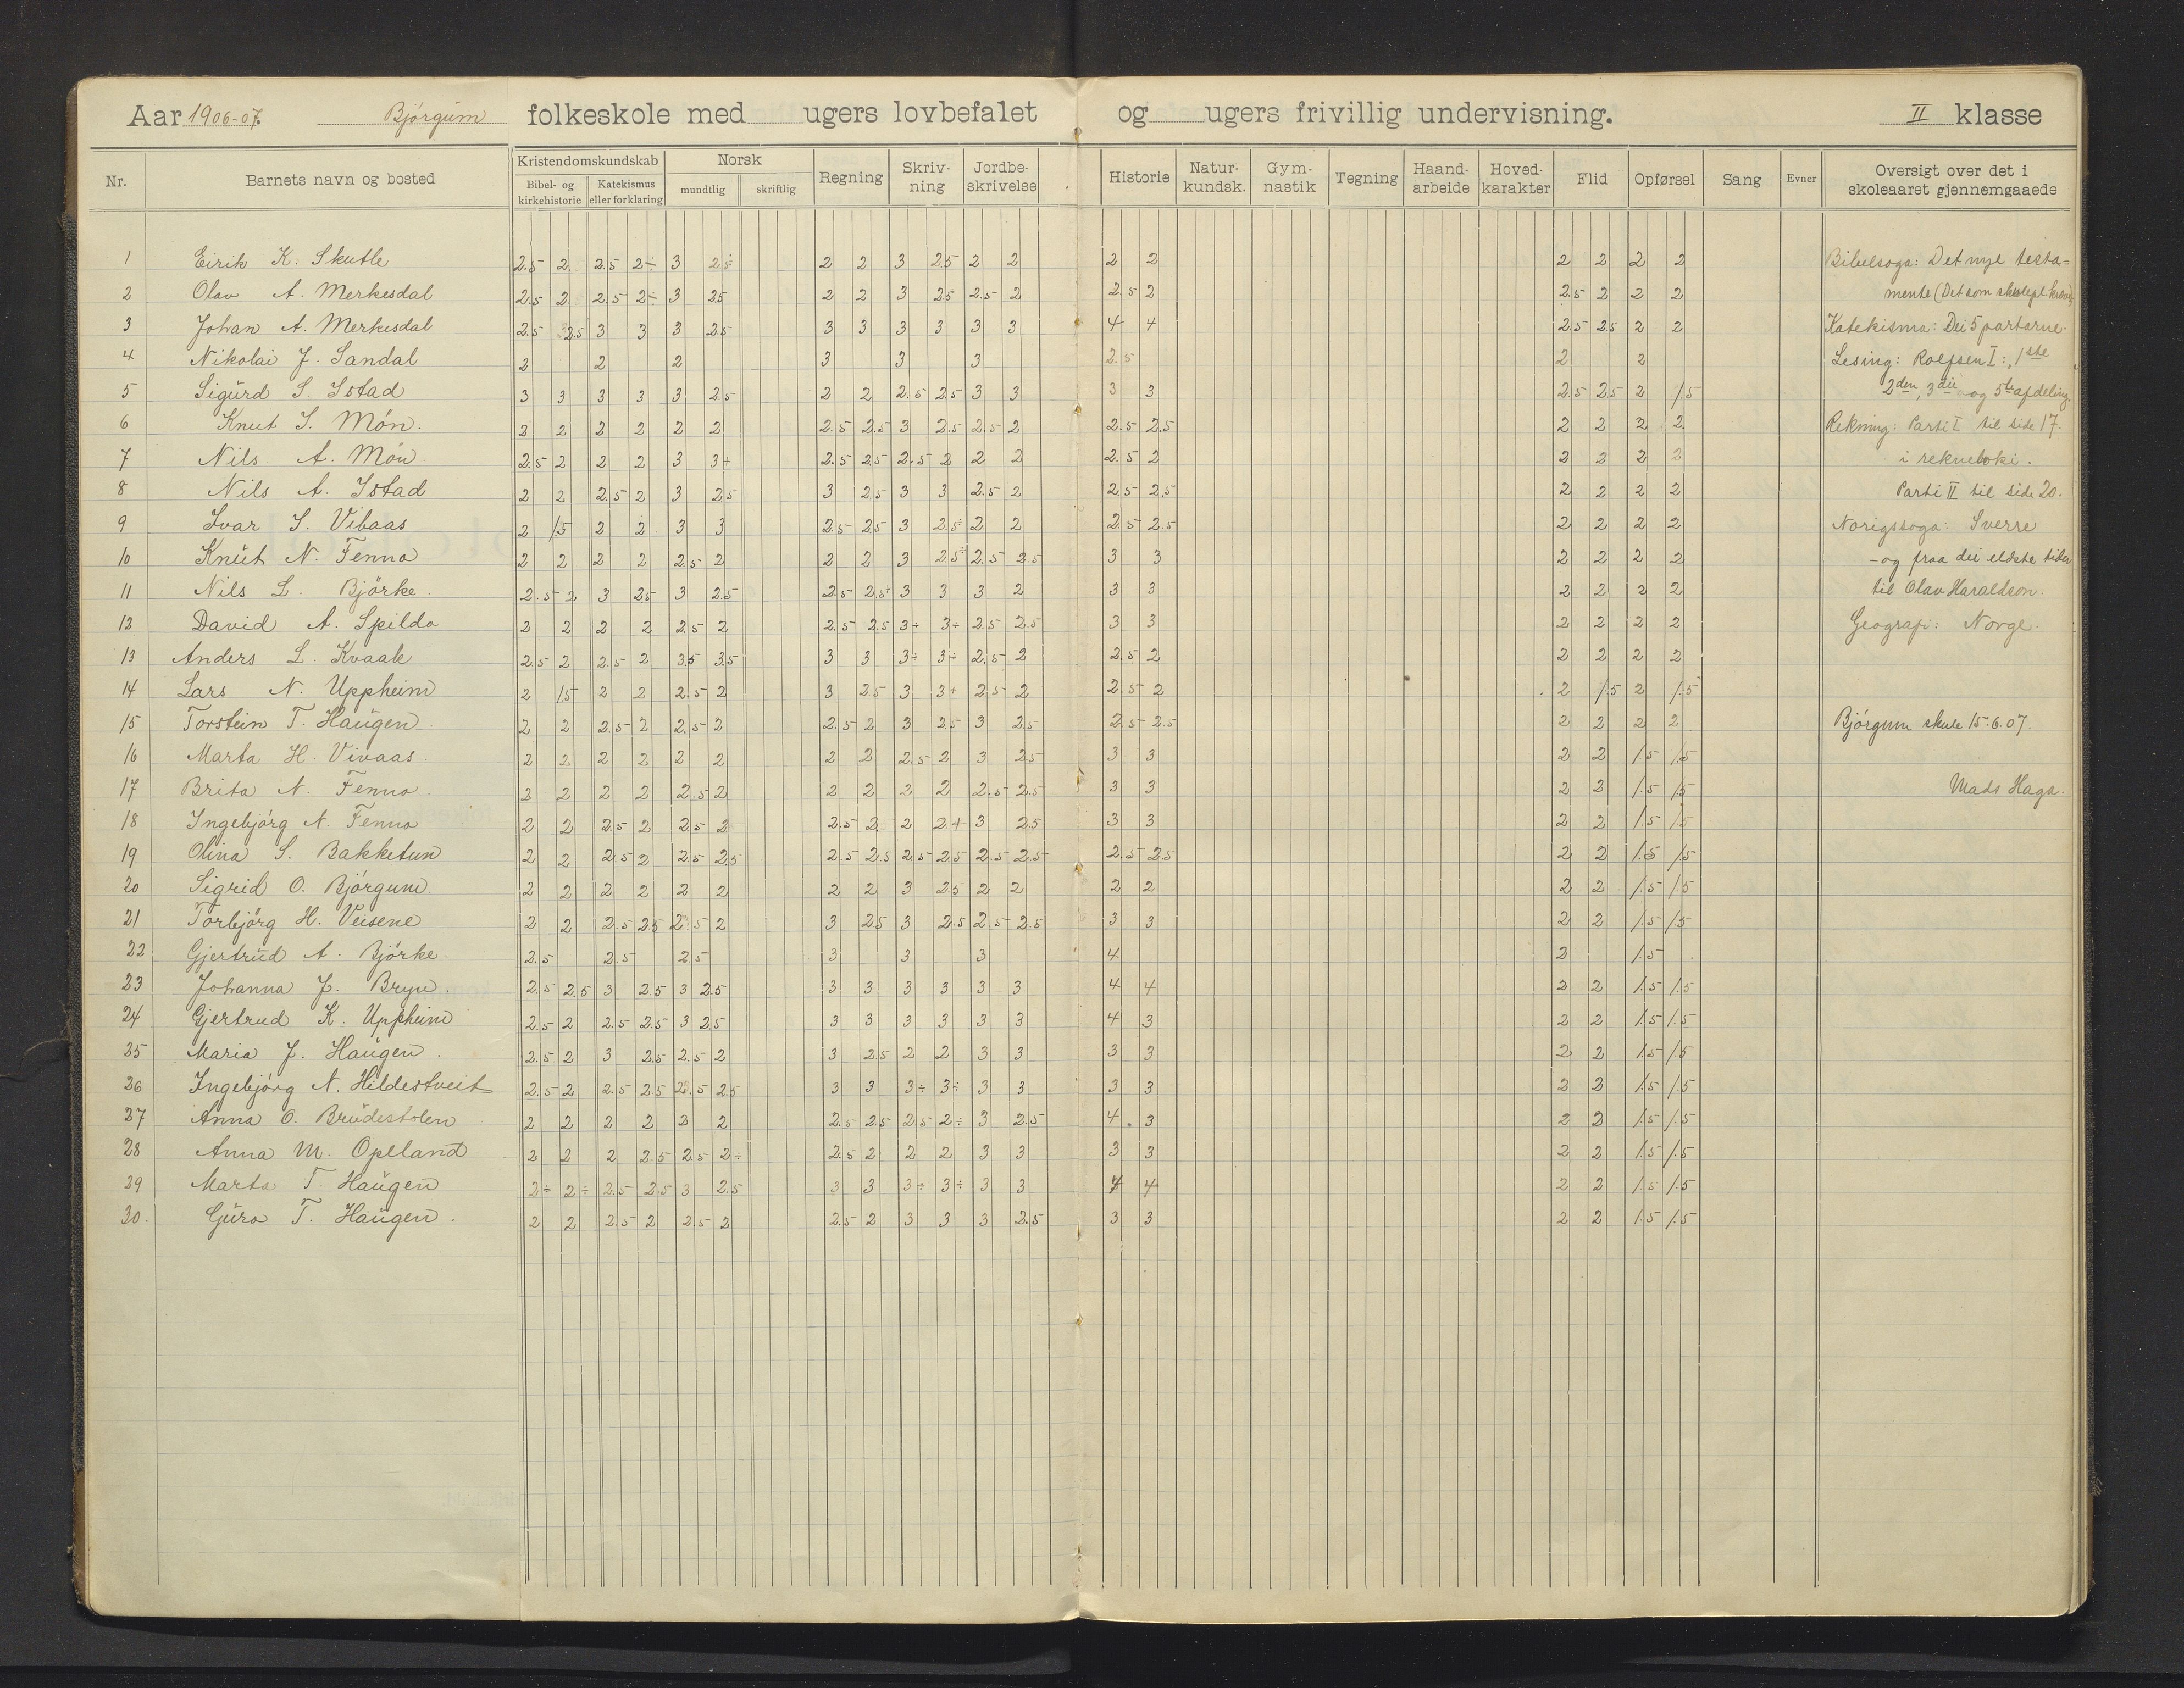 Aar 1906-07. Bjórgum folkeskole med ugers lovbefalet og ugers frivillig undervisning. II klasse
Nr. Barnets navn og bosted Kristendomskundskab Bibel- og kirkehistorie Katekismus eller forklaring Norsk mundtlig skriftlig Regning Skriv-ning Jordbe-skrivelse Historie Natur-kundsk. Gym-nastik Tegning Haand-arbeide Hoved-karakter Flid Opførsel Sang Evner Oversigt over det i skoleaaret gjennemgaaede
1 Eirik K. Skutle 2.5 2 2.5 2÷ 3 2.5÷ 2 2 3 2.5 2 2 2 2 2 2 2 2 Bibelsoga: Det nye testa=
2 Olav A. Merkesdal 2.5 2 2.5 2÷ 3 2.5 2 2 3 2.5 2.5 2 2.5 2 2.5 2 2 2 mente (Det som
3 Johan A. Merkesdal 2.5 2.5 3 3 3 2.5 3 3 3 3 3 3 4 4 2.5 2.5 2 2 Katekisma: Dei 5 partarne.
4 Nikolai J. Sandal 2 2 2 3 3 3 2.5 2 2 Lesing: Rolfsen I:, 1ste
5 Sigurd S. Istad 3 3 3 3 3 2.5 2 2 2.5 2.5 3 3 3 3 2.5 2.5 2 1.5 2den, 3die og 5te afdeling.
6 Knut S. Món. 2 2 2 2 2 2 2.5 2.5 3 2.5 2.5 2 2.5 2.5 2 2 2 2 Rekning: Parti I til side 17.
7 Nils A. Món 2.5 2 2 2 3 3+ 2.5 2.5 2.5 2 2 2 2.5 2 2 2 2 2 i rekneboki.
8 Nils A. Istad 2 2 2.5 2 3 2.5 3 2.5 3 3 2.5 2 2.5 2.5 2 2 2 2 Parti II til side 20.
9 Ivar S. Vibaas 2 1.5 2 2 3 3 2.5 2.5 3 2.5÷ 2 2 2.5 2.5 2 2 2 2 Norigssoga: Sverre
10 Knut N. Fenno 2 2 2 2 2.5 2 2 2 3 2.5÷ 2.5 2.5 3 3 2 2 2 2 - og fraa dei eldste tider
11 Nils L. Björke. 2.5 2 3 2.5 3 2.5 2.5 2.5+ 3 3 3 2 3 3 2 2 2 2 til Olav Haraldson.
12 David A. Spildo 2 2 2 2 2.5 2 2.5 2.5 3÷ 3÷ 2.5 2.5 3 3 2 2 2 2 Geografi: Norge.
13 Anders L. Kvaale 2.5 2 2.5 2 3.5 3.5 3 3 3÷ 3÷ 2.5 2 2.5 2 2 2 2 2
14 Lars N. Uppheim 2 1.5 2 2 2.5 2 3 2.5 3 3+ 2.5 2 2.5 2 2 1.5 2 1.5
15 Torstein T. Haugen. 2 2 2.5 2 2.5 2 2.5 2 3 2.5 3 2.5 2.5 2.5 2 2 2 2 Bjórgum skule 15.6.07.
16 Marta H. Vivaas. 2 2 2 2 2 2 2 2 2.5 2 3 2.5 3 3 2 2 1.5 1.5
17 Brita N. Fenno. 2 2 2 2 2.5 2 2 2 2 2 2.5 2.5 3 3 2 2 1.5 1.5 Mads Haga.
18 Ingebjórg N. Fenno 2 2 2.5 2 2.5 2 2.5 2 2 2+ 3 2.5 3 3 2 2 1.5 1.5
19 Olina S. Bakketun 2 2 2.5 2 2.5 2.5 2.5 2.5 2.5 2.5 2.5 2.5 2.5 2.5 2 2 1.5 1.5
20 Sigrid O. Bjórgum. 2 2 2 2 2 2 2 2 3 2.5 2 2 2 2 2 2 1.5 1.5
21 Torbjórg H. Veisene 2 2 2.5 2.5 2.5 2 3 2.5 3 2.5 2.5 2.5 3 3 2 2 1.5 1.5
22 Gjertrud A. Bjórke. 2.5 2.5 2.5 3 3 3 4 2 1.5
23 Johanna J. Bryn. 2.5 2.5 3 2.5 3 2.5 3 3 3 3 3 3 4 4 2 2 1.5 1.5
24 Gjertrud K. Uppheim 2.5 2 2.5 2.5 3 2.5 3 3 3 3 3 3 4 3 2 2 1.5 1.5
25 Maria J. Haugen. 2.5 2 3 2.5 2.5 2 3 2.5 2 2 3 3 3 3 2 2 1.5 1.5
26 Ingebjórg N. Hildestveit 2.5 2 2.5 2.5 2.5 2.5 3 3 3÷ 3÷ 3 3 3 3 2 2 1.5 1.5
27 Anna O. Brudestolen 2 2 2 2 2 2 2.5 2.5 2.5 2÷ 3 2.5 4 3 2 2 1.5 1.5
28 Anna M. Opeland 2 2 2 2.5 2.5 2÷ 2.5 2 2 2 3 3 3 3 2 2 1.5 1.5
29 Marta T. Haugen 2÷ 2÷ 2.5 2.5 3 2.5 3 3 3÷ 3÷ 3 3 4 4 2 2 1.5 1.5
30. Guro T. Haugen. 2 2 2.5 2 2.5 2 2.5 2 3 3 3 2.5 3 3 2 2 1.5 1.5